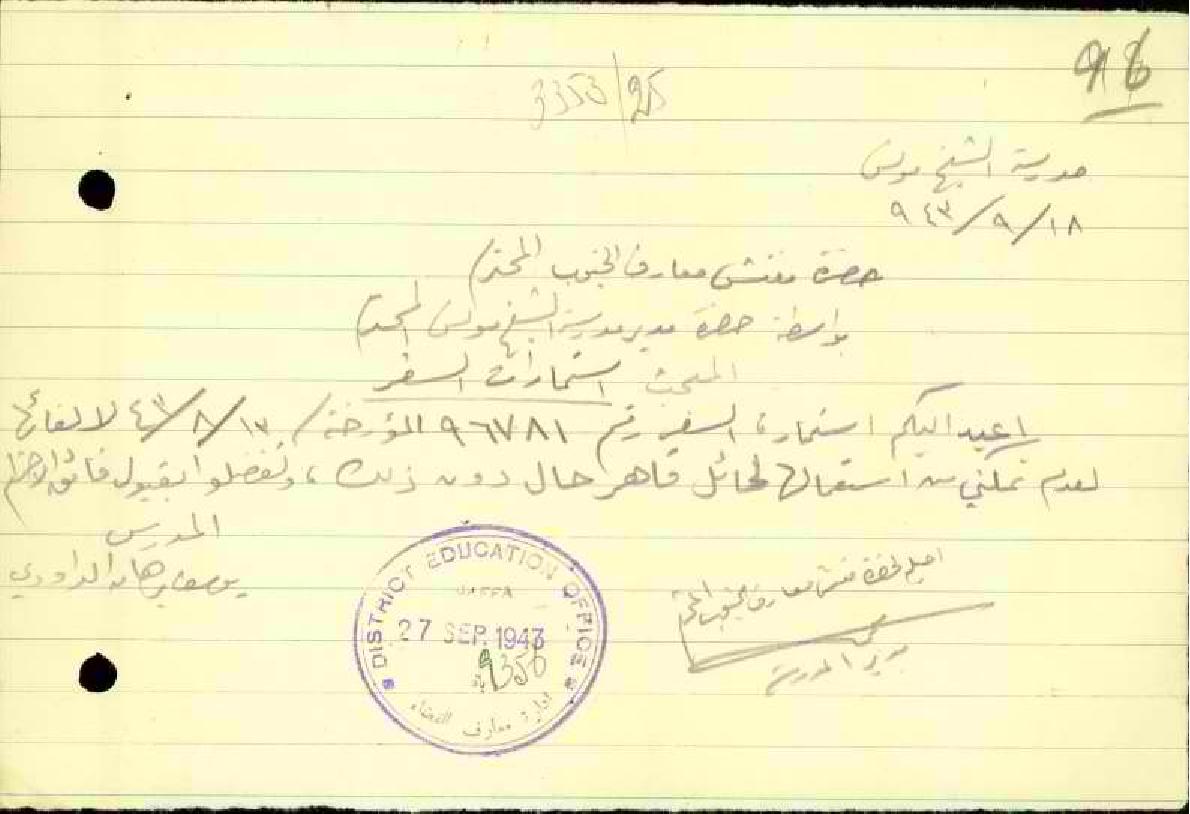 98
3353/25
مدرسة الشيخ مونس
٩٤٣/٩/١٨
حضرة مفتش معارف الجنوب المحترم
بواسطة حضرة مدير مدرسة الشيخ مونس المحترم
المبحث استمارات السفر
أعيد اليكم استمارة السفر رقم ٩٦٧٨١ المؤرخة / ٤٣/٨/١٣ لالغائها
لعدم تمكني من استعمالها لحائل قاهر حال دون ذلك ، وتفضلوا بقبول فائق الاحترام
المدرس
الداودي
احيل لحضرة مفتش معارف الجنوب المحترم
مدير المدرسة
DISTRICT EDUCATION OFFICE
JAFFA
27 SEP. 1943
ادارة معارف القضاء